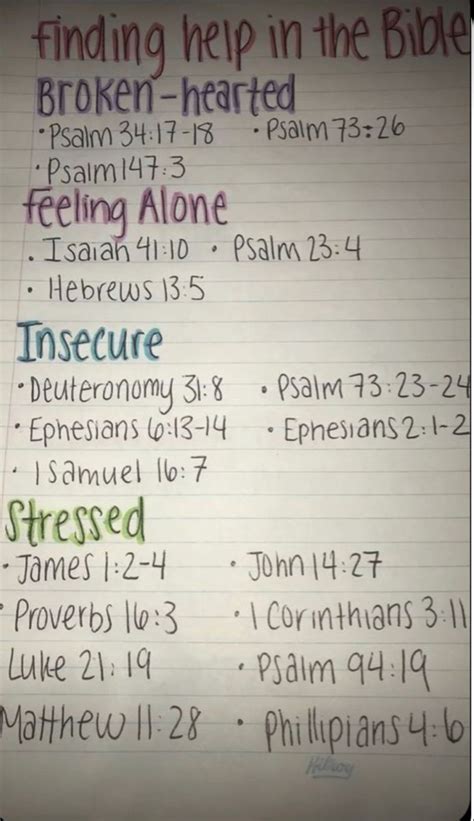 Finding help in the Bible
Broken-hearted
• Psalm 34:17-18 • Psalm 73:26
• Psalm 147:3
feeling Alone
• Isaiah 41:10 • Psalm 23:4
• Hebrews 13:5
Insecure
• Deuteronomy 31:8 • Psalm 73:23-24
• Ephesians 6:13-14 • Ephesians 2:1-2
• 1 Samuel 16:7
Stressed
• James 1:2-4 • John 14:27
• Proverbs 16:3 • 1 Corinthians 3:11
Luke 21:19 • Psalm 94:19
Matthew 11:28 • Phillipians 4:6
Hilroy